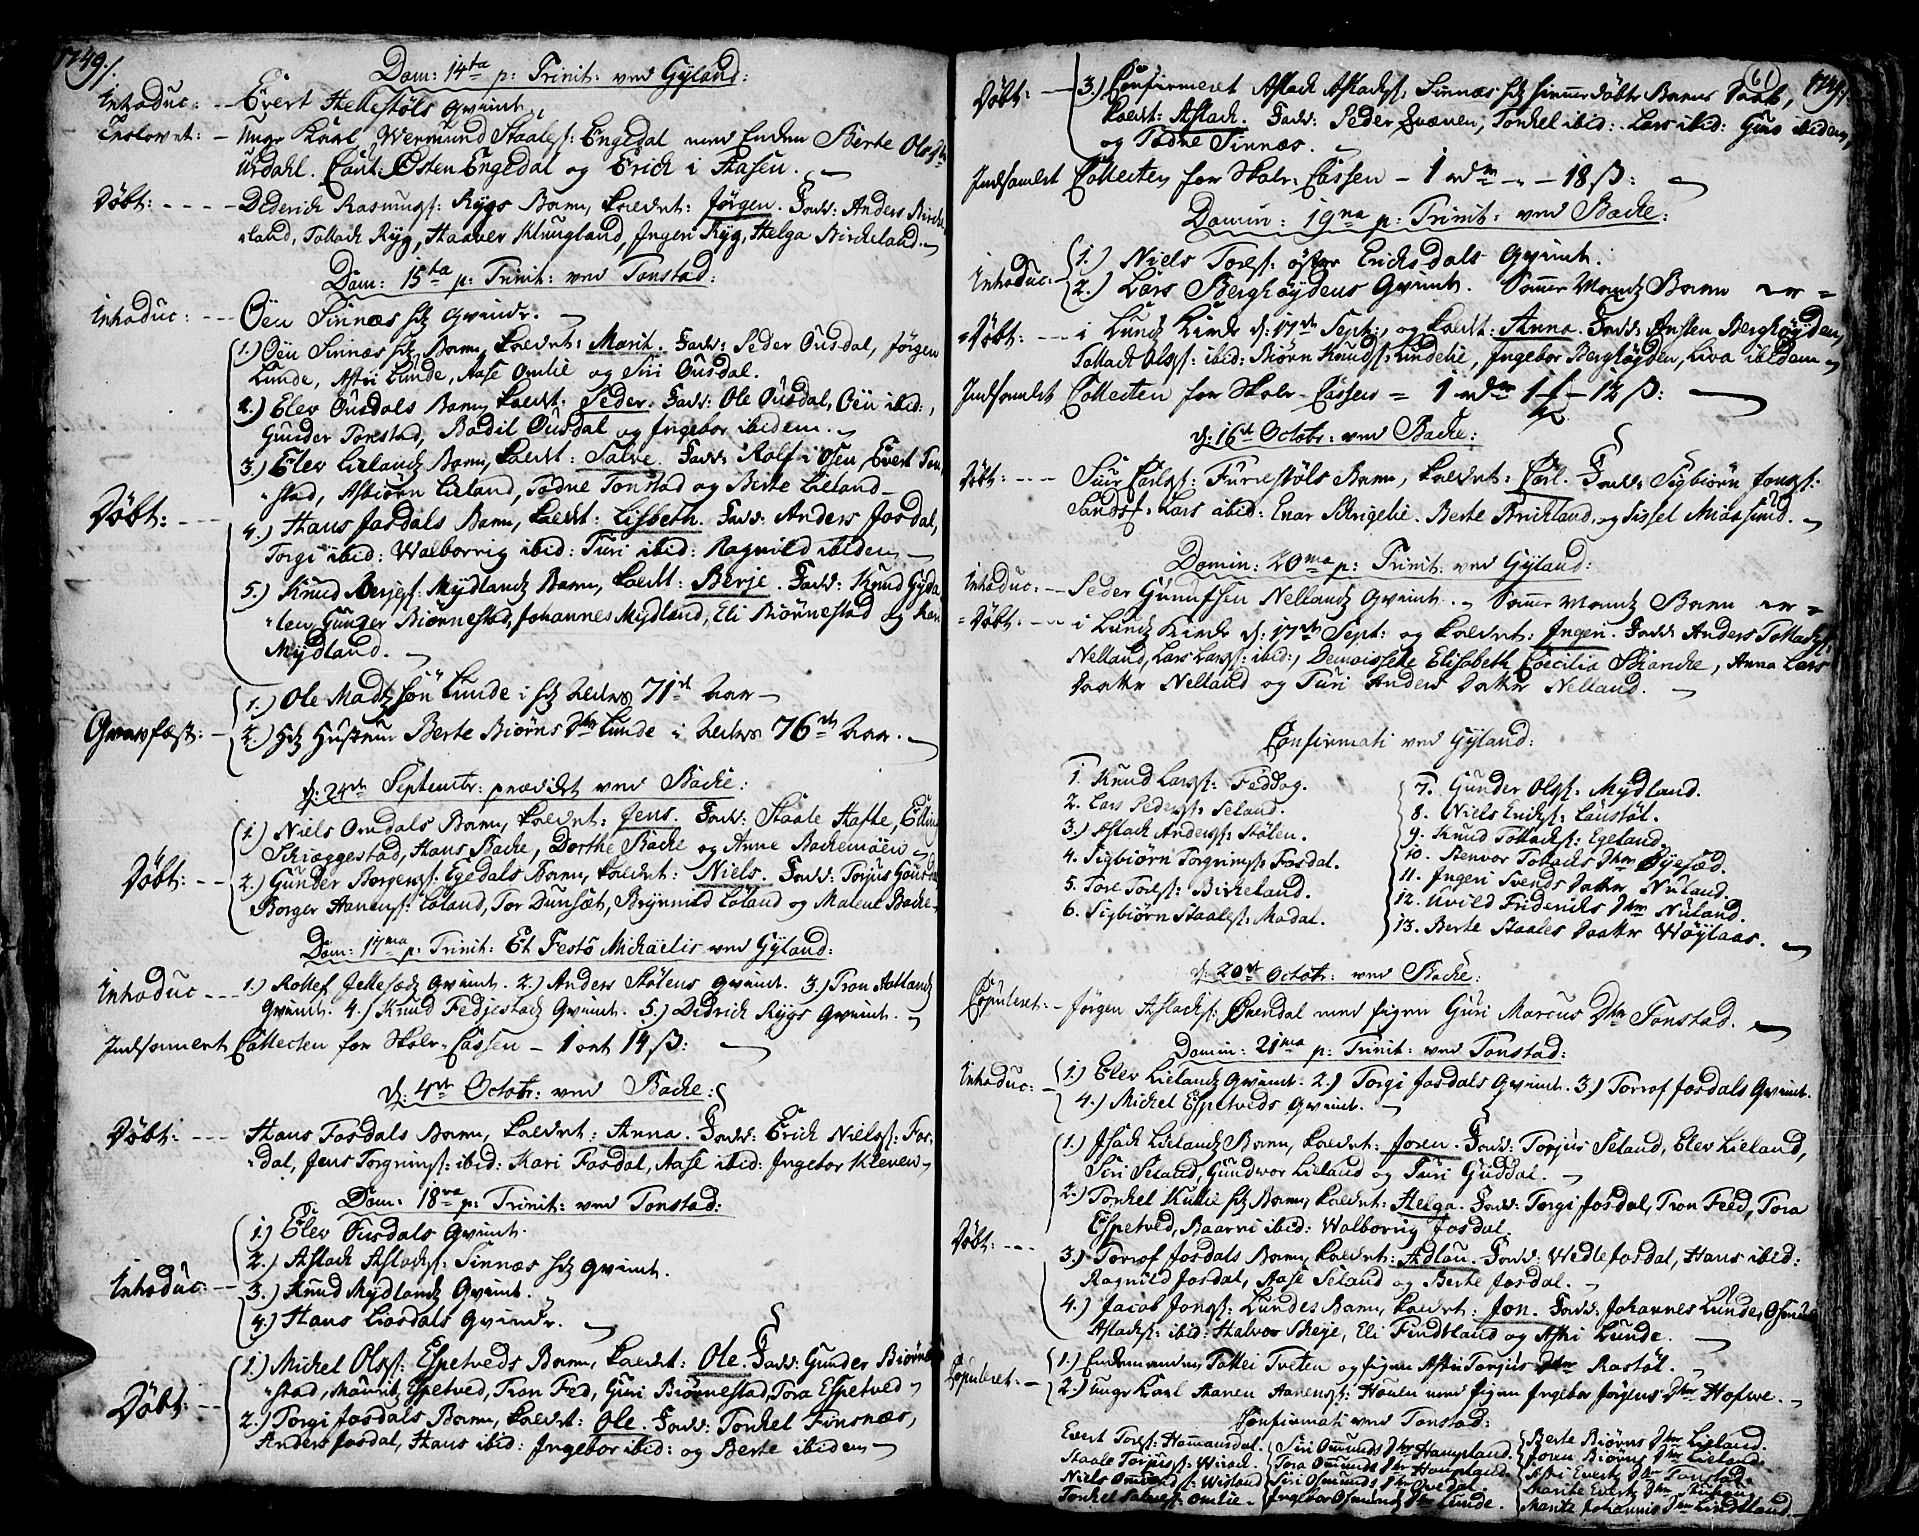 1749/.
Dom: 14ta p: Trinit: ved Gyland:
Introduc: -- Evert Hellestøls Qvinde,
Troslovet: - Unge Karl Wermund Staales: Engedal med Enken Berte Ols
Urdahl. Caut: Østen Engedal og Erich i Aasen.
Døbt: ---- Diderich Rasmuss: Rygs Barn, kaldet: Jørgen. Fadd: Anders Birche
land, Tollack Ryg, Haaver Klungland, Ingeri Ryg, Helga Bircheland.
Dom: 15ta p: Trinit: ved Tonstad:
Introduc: --- Øen Sinnæs hs Qvinde.
1.) Øen Sinnæs hs Barn, kaldet: Marit. Fadd: Peder Ousdal, Jørgen
Lunde, Astri Lunde, Aase Omlie og Siri Ousdal.
2.) Elev Ousdals Barn, kaldet: Peder. Fadd: Ole Ousdal, Øen ibid:,
Gunder Tonstad, Bodil Ousdal og Ingebor ibidem.
3.) Elev Lielands Barn, kaldet: Salve. Fadd: Rolf i Osen, Evert Ton
stad, Asbiørn Lieland, Tødne Tonstad og Berte Lieland
Døbt: ---
4.) Hans Josdals Barn, kaldet: Lisbeth. Fadd: Anders Josdal,
Torgi ibid: Walborrig ibid: Turi ibid: Ragnild ibidem
5.) Knud Berjes: Mydlands Barn, kaldet: Berje. Fadd: Knud Gyda
len, Gunder Biørnestad, Johannes Mydland, Eli Biørnestad og Kari
Mydland.
Gravfæst: -
1.) Ole Madssøn Lunde i hs Alders 71de Aar
2.) Hs Hustrue Berte Biørns Dtr Lunde i Alders 76de Aar.
d: 24de Septembr: prædiket ved Backe:
Døbt: --
1.) Niels Omdals Barn, kaldet: Jens. Fadd: Staale Hafte, Elling
Schiæggestad, Hans Backe, Dorthe Backe og Anne Backemoen
2.) Gunder Borgers: Egedals Barn, kaldet: Niels. Fadd: Torjus
Borger Aanens: Løland, Tor Dunsæt, Brynnild Løland og Malene Backe
Dom: 17ma p: Trinit: Et Festo Michaelis ved Gyland:
Introduc --- 1.) Rollef Jellesæds Qvinde. 2.) Anders Stølens Qvinde. 3.) Tron Aatlands
Qvinde. 4.) Knud Fedjestads Qvinde. 5.) Didrich Rygs Qvinde.
Indsamlet Collecten for Skole-Cassen - 1 ort 14 ß:
d: 4de Octobr: ved Backe:
Døbt: --- Hans Fosdals Barn, kaldet: Anna. Fadd: Erich Niels: Fos-
dal, Jens Torgrims: ibid: Kari Fosdal, Aase ibid: Ingebor Kleven
Dom: 18va p: Trinit: ved Tonstad:
Introduc: -
1.) Elev Ousdals Qvinde.
2.) Aslack Aslacks: Sinnæs hs Qvinde.
3.) Knud Mydlands Qvinde.
4.) Hans Liosdals Qvinde.
Døbt: --
1.) Michel Ols: Espetveds Barn, kaldet: Ole. Fadd: Gunder Biørne
stad, Mauritz Espetved, Tron Fed, Guri Biørnestad, Tora Espetved
2.) Torgi Josdals Barn, kaldet: Ole. Fadd: Tonkel Finsnæs,
Anders Josdal, Hans ibid: Ingebor ibid: og Berte ibidem
61
1749/.
Døbt: - 3.) Confirmeret Aslack Aslacks: Sinnæs hs hiemmedøbte Barns Daab,
kaldet: Aslack. Fadd: Peder Svænen, Tonkel ibid: Lars ibid: Guro ibidem,
og Tødne Sinnæs.
Indsamlet Collecten for Skole-Cassen - 1 - 18 ß:
Domin: 19na p: Trinit: ved Backe:
Introduc: -
1.) Niels Tores: øfre Ericksdals Qvinde.
2.) Lars Berghøydens Qvinde. Samme Mands Barn er
Døbt: --- i Lunds Kirke d: 17de Sept: og kaldet: Anna. Fadd: Austen Berghøyden,
Tollack Ols: ibid: Biørn Knuds: Lindelie, Ingebor Berghøyden, Liva ibidem
Indsamlet Collecten for Skole-Cassen = 1 1 - 12 ß:
d: 16de Octobr: ved Backe:
Døbt: --- Siur Carls: Furrestøls Barn, kaldet: Carl. Fadd: Sigbiørn Jons:
Lars ibid: Enar Skrigelie. Berte Brickland, og Sissel Miaasund.
Domin: 20ma p: Trinit: ved Gyland:
Introduc: -- Peder Gunufsen Nellands Qvinde. Samme Mands Barn er
Døbt: --- i Lunds Kirke d: 17de Sept: og kaldet: Ingeri. Fadd: Anders Tollacks:
Nelland, Lars Lars: ibid:, Demoiselle Elisabeth Coecilia Blancke, Anna Lars
Datter Nelland og Turi Anders Datter Nelland.
Confirmati ved Gyland:
1. Knud Lars: Feddog.
2. Lars Peders: Seland.
3. Aslack Anders: Stølen.
4. Sigbiørn Torgrims: Fosdal.
5. Tore Tores: Bircheland.
6. Sigbiørn Staales: Mødal.
7. Gunder Ols: Mydland.
8. Niels Ericks: Laustøl.
9. Knud Tollacks: Egeland.
10. Stenvor Tollacks Dtr Øyesæd.
11. Ingeri Svends Datter Nuland.
12. Gvild Friderichs Dtr Nuland.
13. Berte Staales Datter Wøylaas.
d: 20de Octobr: ved Backe:
Copuleret: - Jørgen Aslacks: Øvendal med Pigen Guri Marcus Dtr Tonstad.
Domin: 21ma p: Trinit: ved Tonstad:
Introduc: -
1.) Elev Lielands Qvinde. 2.) Torgi Josdals Qvinde. 3.) Torrof Josdals Qvinde.
4.) Michel Espetveds Qvinde.
Døbt: ---
1.) Isack Lielands Barn, kaldet: Joren. Fadd: Torjus Seland, Elev Lieland,
Siri Seland, Gundvor Lieland og Turi Guddal.
2.) Tonkel Kulie hs Barn, kaldet: Helga. Fadd: Torgi Josdal, Tron Fed, Tora
Espetved, Baarni ibid: Walborrig Josdal.
3.) Torrof Josdals Barn, kaldet: Adlau. Fadd: Wedle Josdal, Hans ibid:
Ragnild Josdal, Aase Seland og Berte Josdal.
4.) Jacob Jons: Lundes Barn, kaldet: Jon. Fadd: Johannes Lunde, Osmund
Aslacks: ibid: Halvor Skeje, Eli Findsland og Astri Lunde.
Copuleret: -
1.) Enkemanden Tollei Tveten og Pigen Astri Torjus Dtr Rostøl.
2.) Unge Karl Aanen Aanens: Houen med Pigen Ingebor Jørgens Dtr Hofwe.
Confirmati ved Tonstad:
Evert Tores: Hommansdal.
Staale Torjus: Wirack.
Niels Omunds: Wisland
Tonkel Salves: Omlie
Siri Omunds Dtr Hompland.
Tora Omunds Dtr Hompland.
Siri Osmunds Dtr Qvedal.
Ingebor Osmunds Dtr Lunde.
Berte Biørns Dtr Lieland.
Joren Biørns Dtr Lieland.
Astri Everts Dtr Tonstad.
Marite Everts Dtr
Marite Johannis Dtr Lindeland.